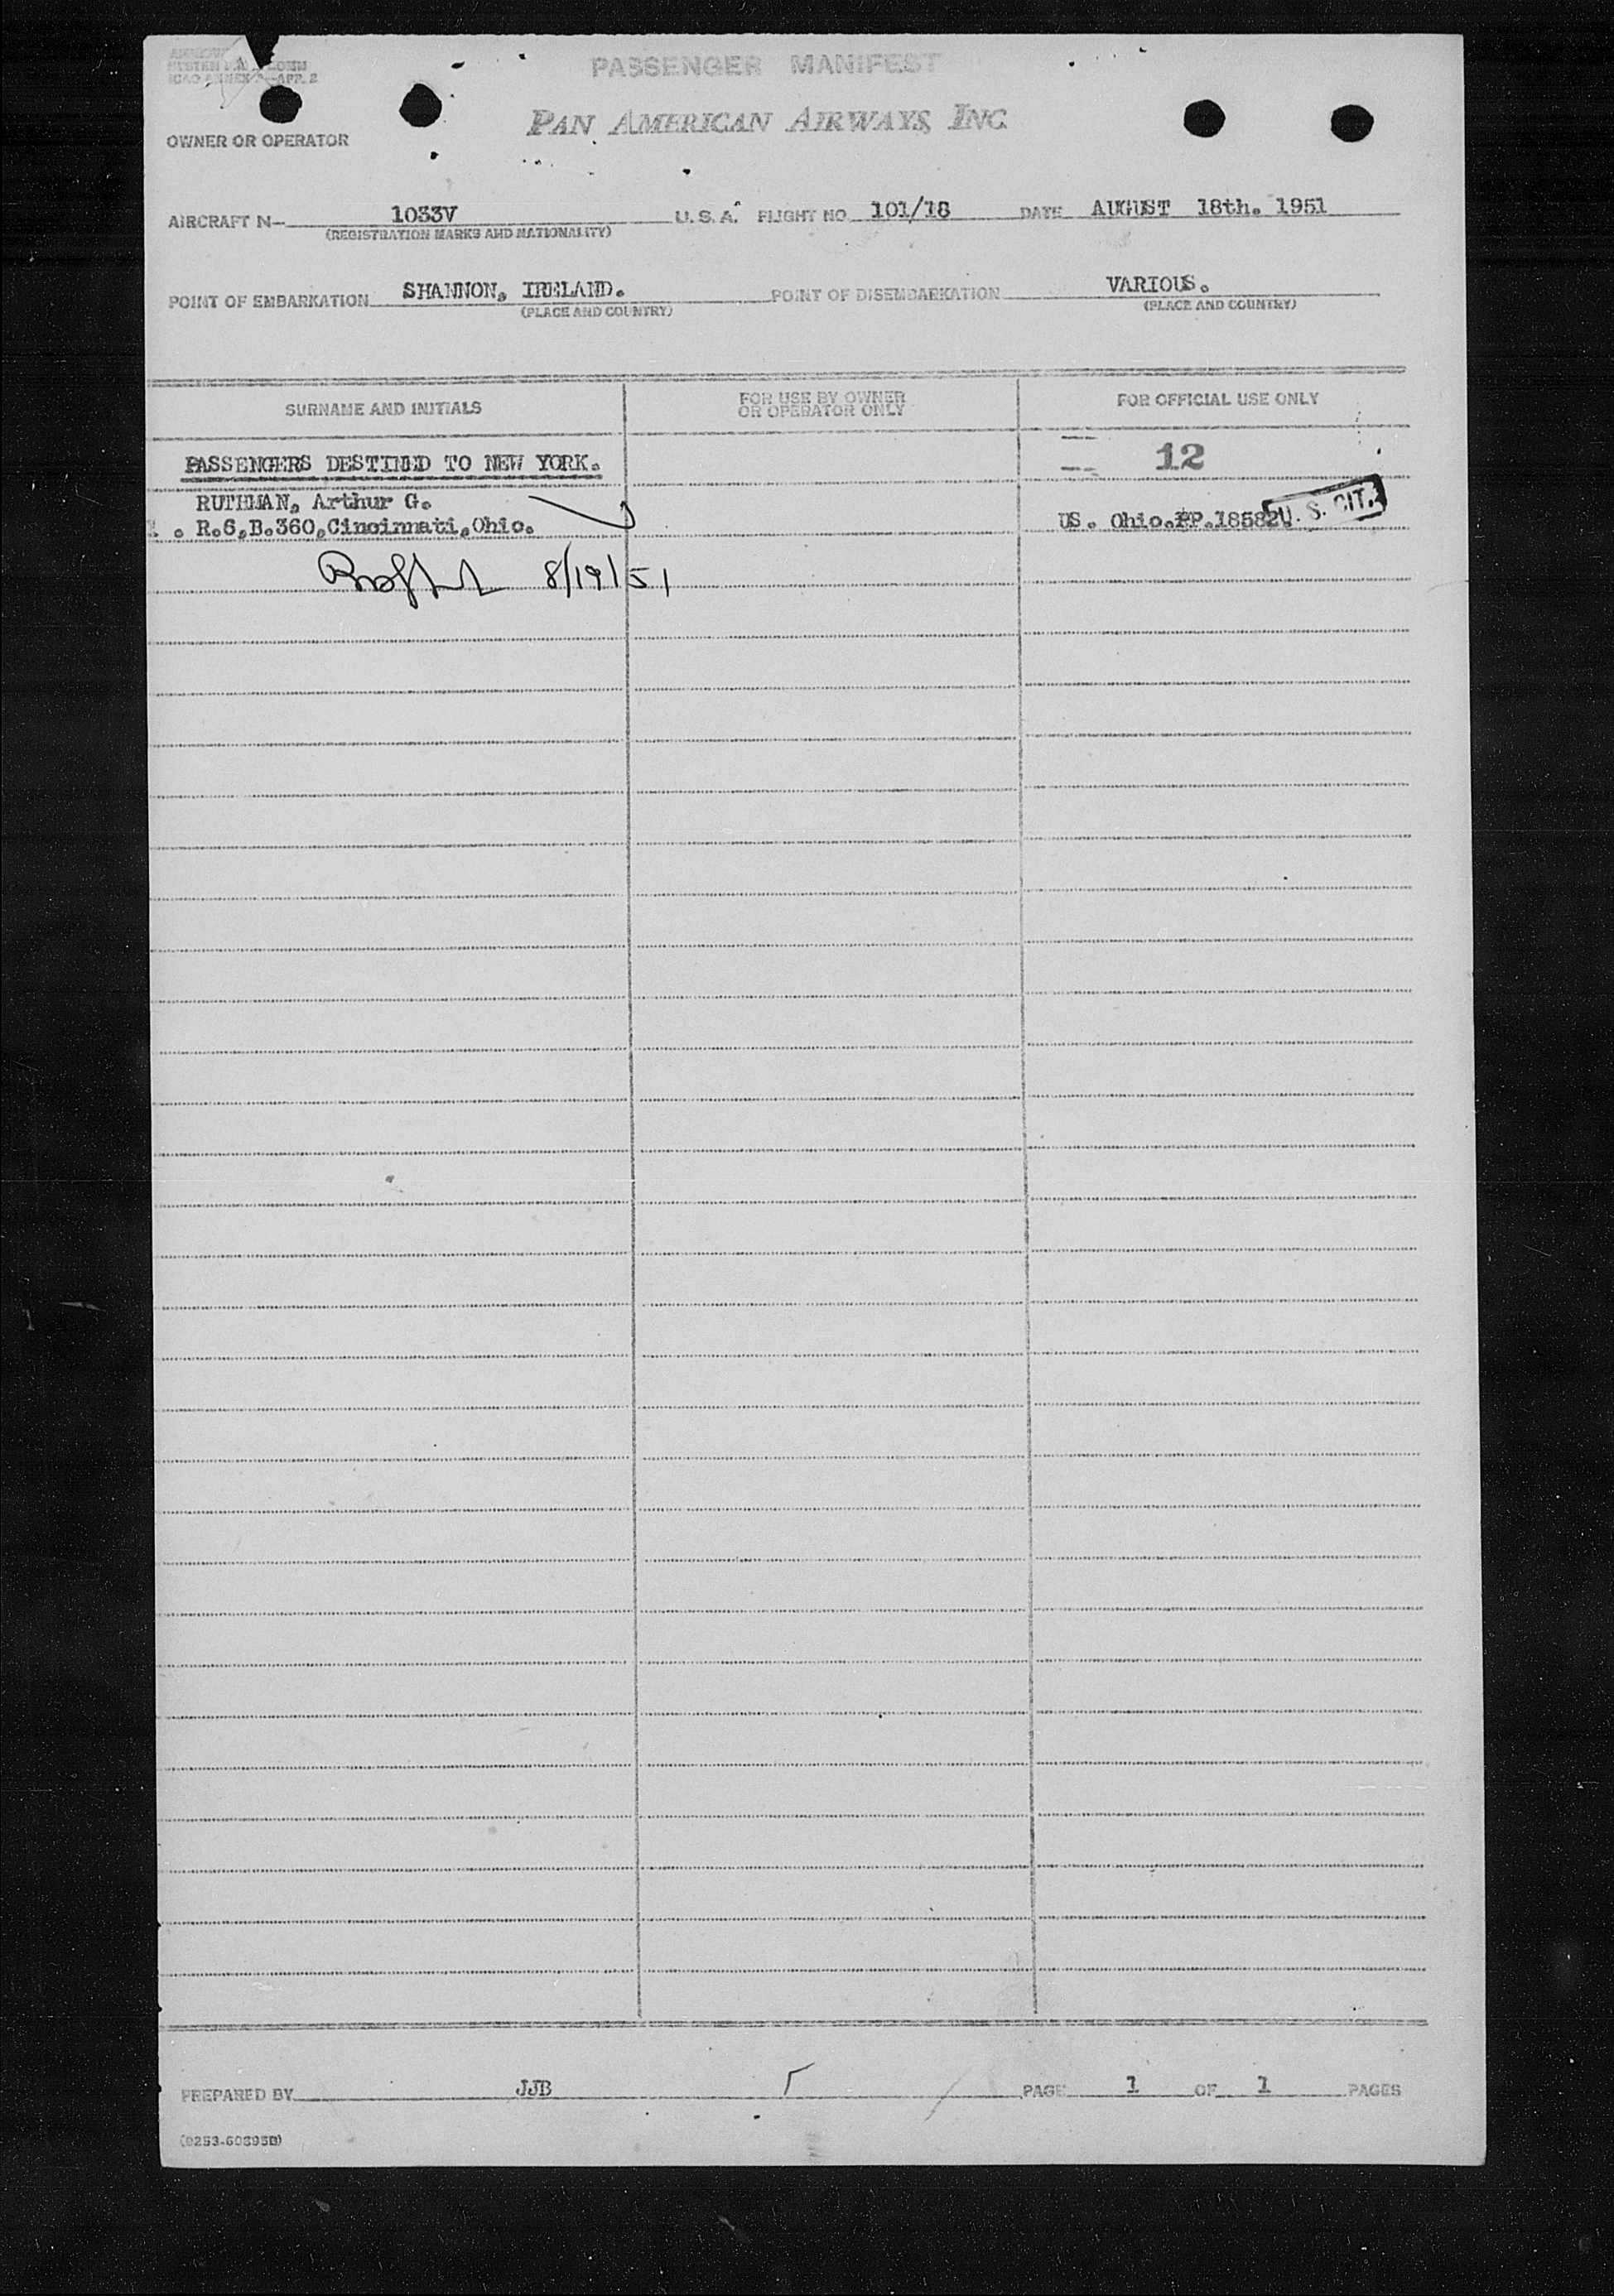 ICAO ANNEX 9—APP. 2
PASSENGER MANIFEST
PAN AMERICAN AIRWAYS, INC.
OWNER OR OPERATOR
AIRCRAFT N— 1033V U. S. A. FLIGHT NO. 101/18 DATE AUGUST 18th. 1951
(REGISTRATION MARKS AND NATIONALITY)
POINT OF EMBARKATION SHANNON, IRELAND. POINT OF DISEMBARKATION VARIOUS.
(PLACE AND COUNTRY) (PLACE AND COUNTRY)
SURNAME AND INITIALS FOR USE BY OWNER OR OPERATOR ONLY FOR OFFICIAL USE ONLY
PASSENGERS DESTINED TO NEW YORK. 12
RUTHMAN, Arthur G.
. R.6,B.360,Cincinnati,Ohio. US. Ohio.PP.18582 U. S. CIT.
8/19/51
PREPARED BY JJB PAGE 1 OF 1 PAGES